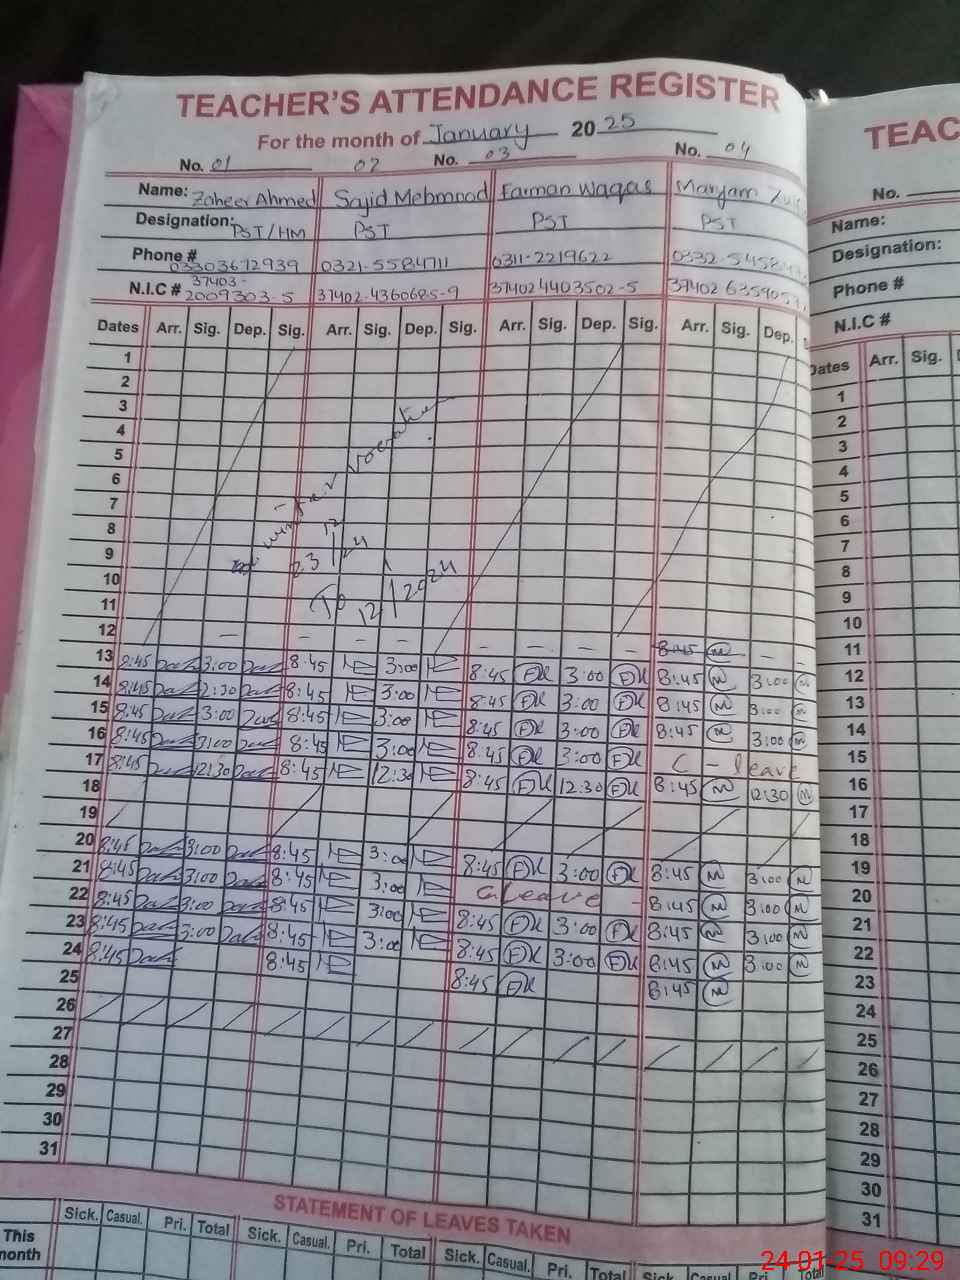 TEACHER'S ATTENDANCE REGISTER
For the month of January 2025
No. 01 02 No. 03 No. 04
Name: Zaheer Ahmed Sajid Mehmood Farman Waqas Maryam
Designation: PST/HM PST PST PST
Phone # 03303672939 0321-5584711 0311-2219622
N.I.C # 37403-2009303-5 37402-4360685-9 374024403502-5
Dates Arr. Sig. Dep. Sig. Arr. Sig. Dep. Sig. Arr. Sig. Dep. Sig. Arr. Sig. Dep.
1
2
3
4
5
6
7
8
9
10
11
12
winter vacation
23 12/24
To 12/1/2024
8:45
13 8:45 3:00 8:45 3:00 8:45 3:00 8:45 3:00
14 8:45 2:30 8:45 3:00 8:45 3:00 8:45 3:00
15 8:45 3:00 8:45 3:00 8:45 3:00 8:45 3:00
16 8:45 3:00 8:45 3:00 8:45 3:00 C-leave
17 8:45 12:30 8:45 12:30 8:45 12:30 8:45 12:30
18
19
20 8:45 3:00 8:45 3:00 8:45 3:00 8:45 3:00
21 8:45 3:00 8:45 3:00 C Leave 8:45 3:00
22 8:45 3:00 8:45 3:00 8:45 3:00 8:45 3:00
23 8:45 3:00 8:45 3:00 8:45 3:00 8:45 3:00
24 8:45 8:45 8:45 8:45
25
26
27
28
29
30
31
STATEMENT OF LEAVES TAKEN
Sick. Casual. Pri. Total Sick. Casual. Pri. Total Sick. Casual. Pri. Total Sick. Casual Pri. Total
This month
TEAC
No.
Name:
Designation:
Phone #
N.I.C #
Dates Arr. Sig.
1
2
3
4
5
6
7
8
9
10
11
12
13
14
15
16
17
18
19
20
21
22
23
24
25
26
27
28
29
30
31
24-01-25 09:29